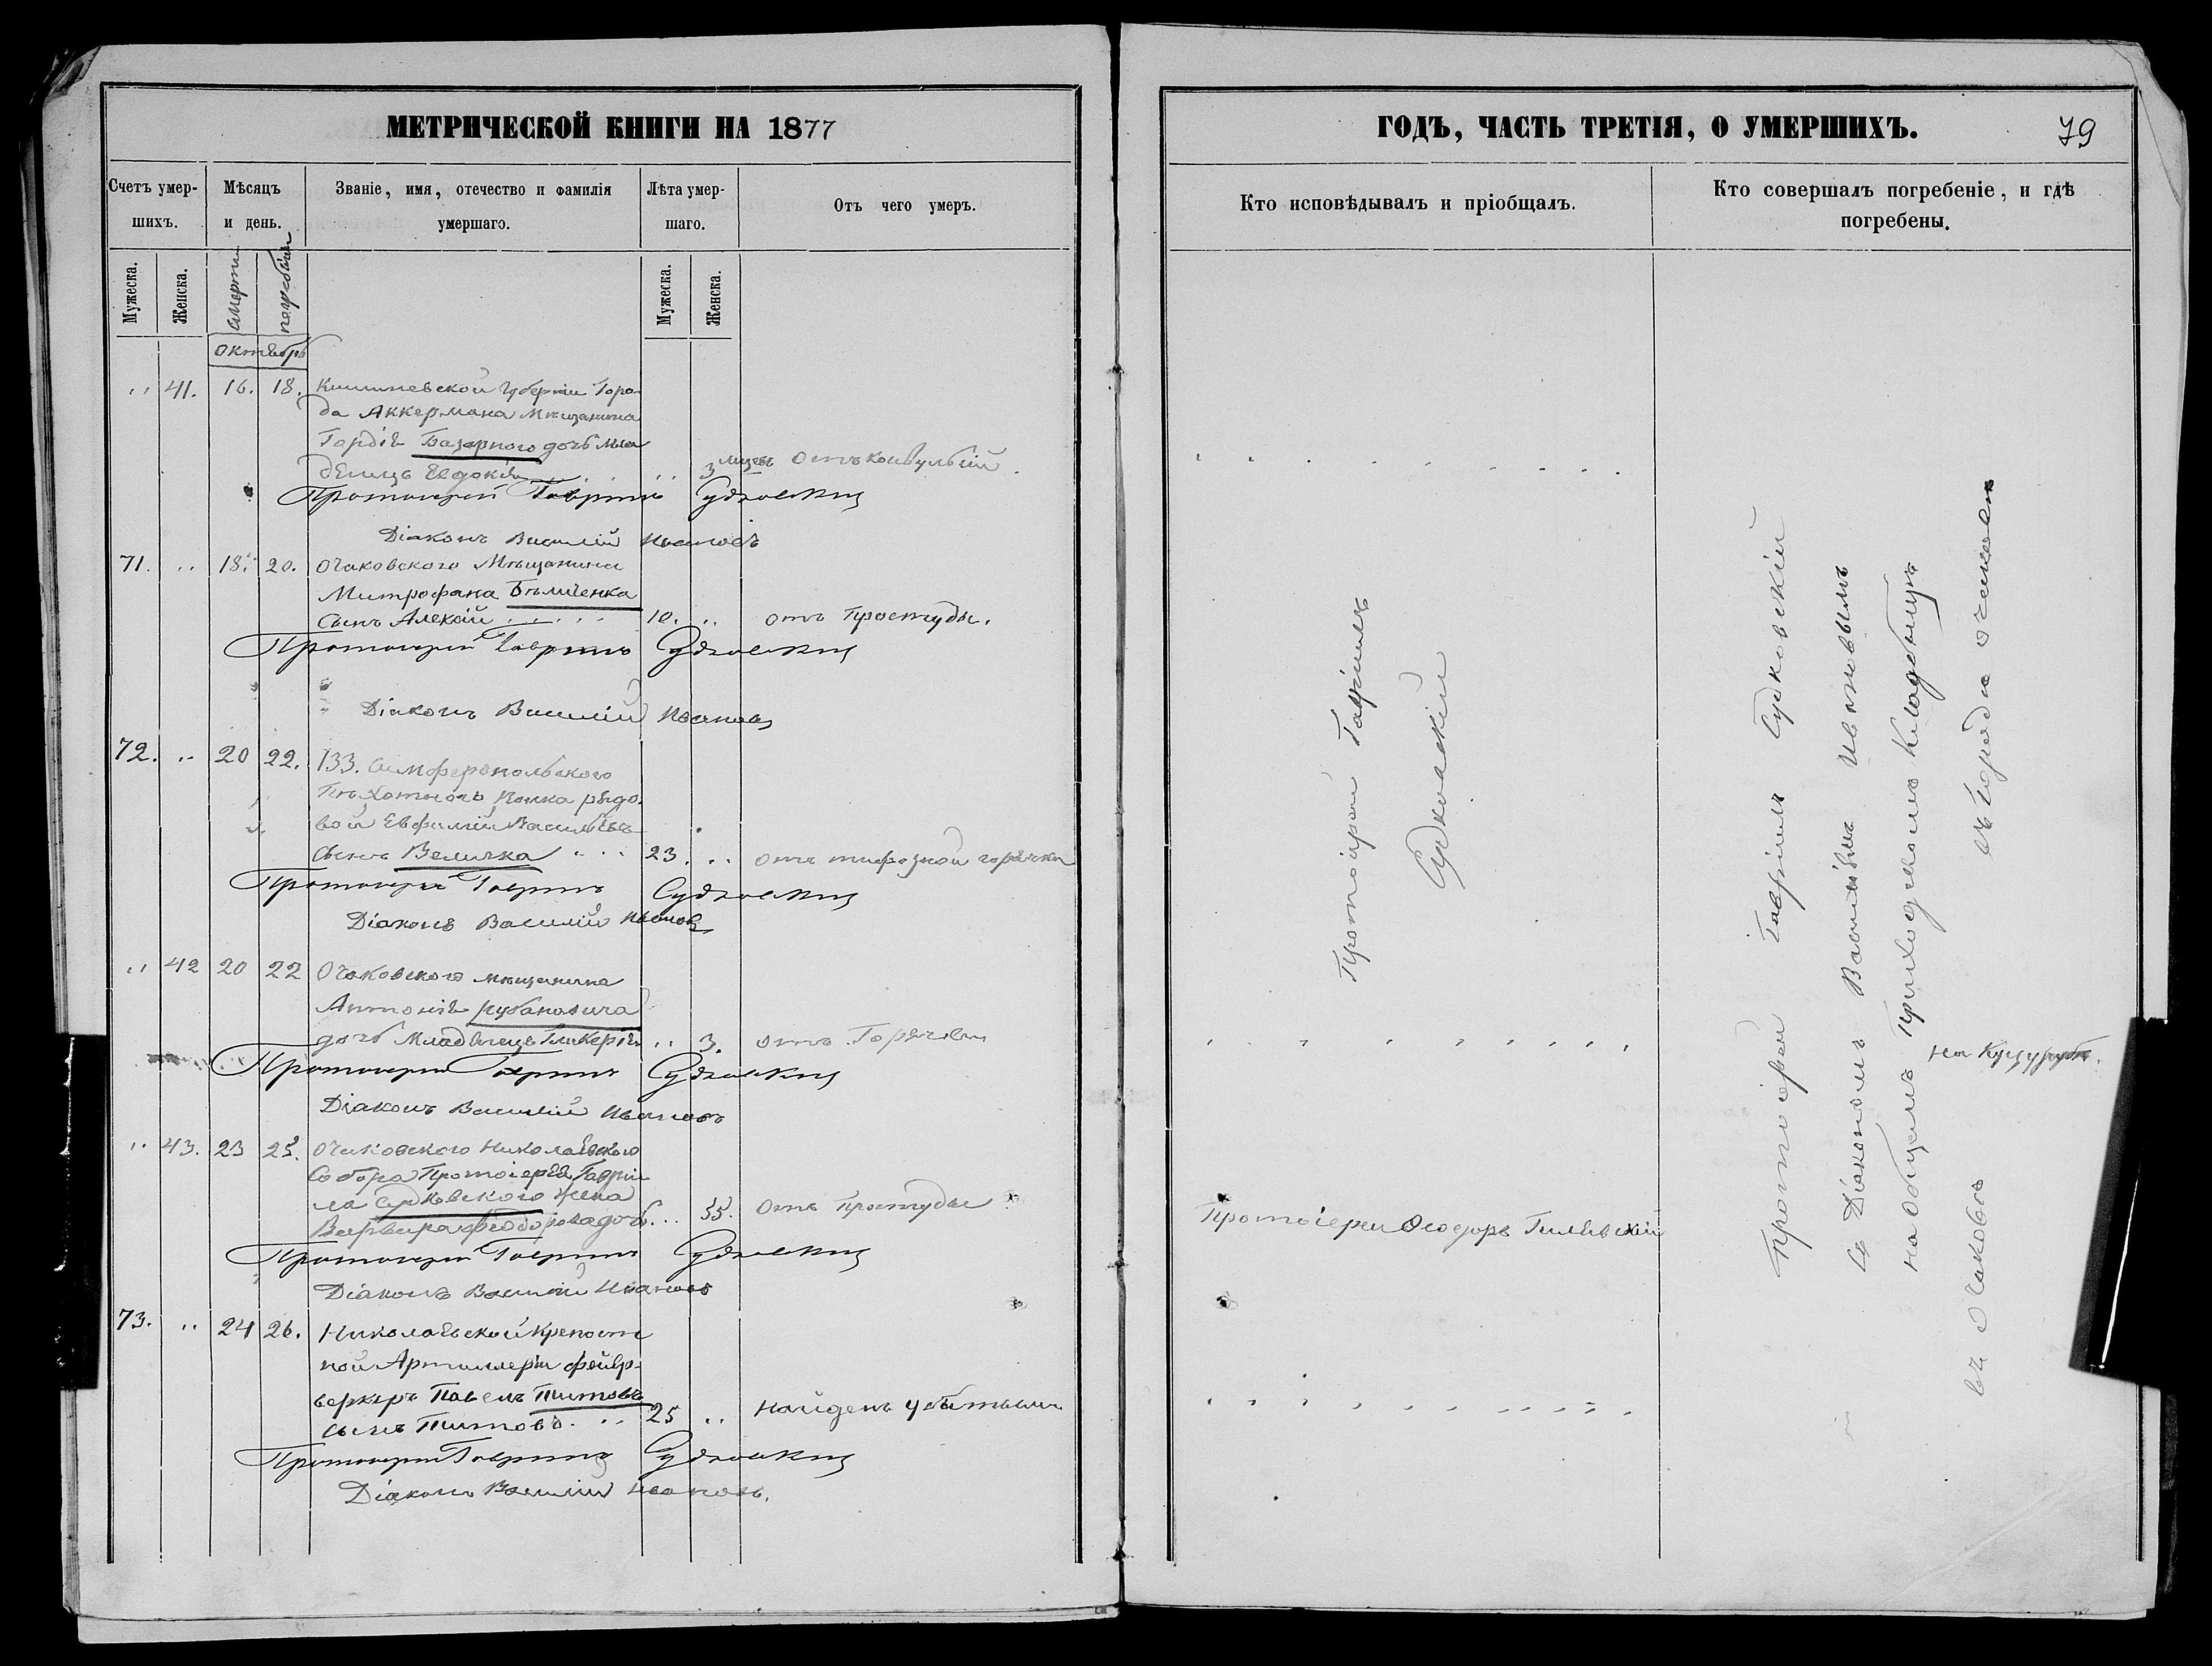 МЕТРИЧЕСКОЙ КНИГИ НА 1877
Счетъ умер-
шихъ.
Мѣсяцъ
и день.
Званіе, имя, отечество и фамилія
умершаго.
Лѣта умер-
шаго.
Отъ чего умеръ.
Мужеска.
Женска.
смерти
погребенія
Мужеска.
Женска.
Октябрь
,, 41. 16. 18. Кишиневской губерніи Горо-
да Аккермана Мѣщанина
Гордія Базарного дочь мла
денецъ Евдокія . . . ,, 3 мцевъ Отъ конвульсій.
Протоіерей Гавріилъ Судковскій
Діаконъ Василій Ивановъ
71. ,, 18. 20. Очаковского Мѣщанина
Митрофана Бѣличенка
Сынъ Алексій . . . . . 10. ,, отъ Простуды.
Протоіерей Гавріилъ Судковскій
Діаконъ Василій Ивановъ
72. ,, 20 22. 133. Симферопольского
Пѣхотного Полка рядо-
вой Евфимій Васильевъ
Сынъ Величка . . . 23. ,, отъ тифозной горячки
Протоіерей Гавріилъ Судковскій
Діаконъ Василій Ивановъ
,, 42 20 22 Очаковского мѣщанина
Антонія Рубановича
дочь Младенецъ Гликерія ,, 3. отъ Горячки
Протоіерей Гавріилъ Судковскій
Діаконъ Василій Ивановъ
,, 43. 23 25. Очаковского Николаевского
Собора Протоіерея Гавріи
ла Судковского жена
Варвара Феодорова дочь. ,, 55. Отъ Простуды
Протоіерей Гавріилъ Судковскій
Діаконъ Василій Ивановъ
73. ,, 24 26. Николаевской Крепост
ной Артиллеріи фейер-
веркеръ Павелъ Титовъ
сынъ Титовъ. ,, 25 ,, Найденъ убитымъ
Протоіерей Гавріилъ Судковскій
Діаконъ Василій Ивановъ.
ГОДЪ, ЧАСТЬ ТРЕТІЯ, О УМЕРШИХЪ.
79
Кто исповѣдывалъ и пріобщалъ.
Кто совершалъ погребеніе, и гдѣ
погребены.
Протоіерей Гавріилъ
Судковскій
Протоіерей Ѳеодоръ
Протоіерей Гавріилъ Судковскій
съ Діакономъ Василіемъ Ивановымъ
на общемъ Приходскомъ Кладбищѣ
въ Городѣ Очаковѣ
на Куцурубѣ.
въ Очаковѣ